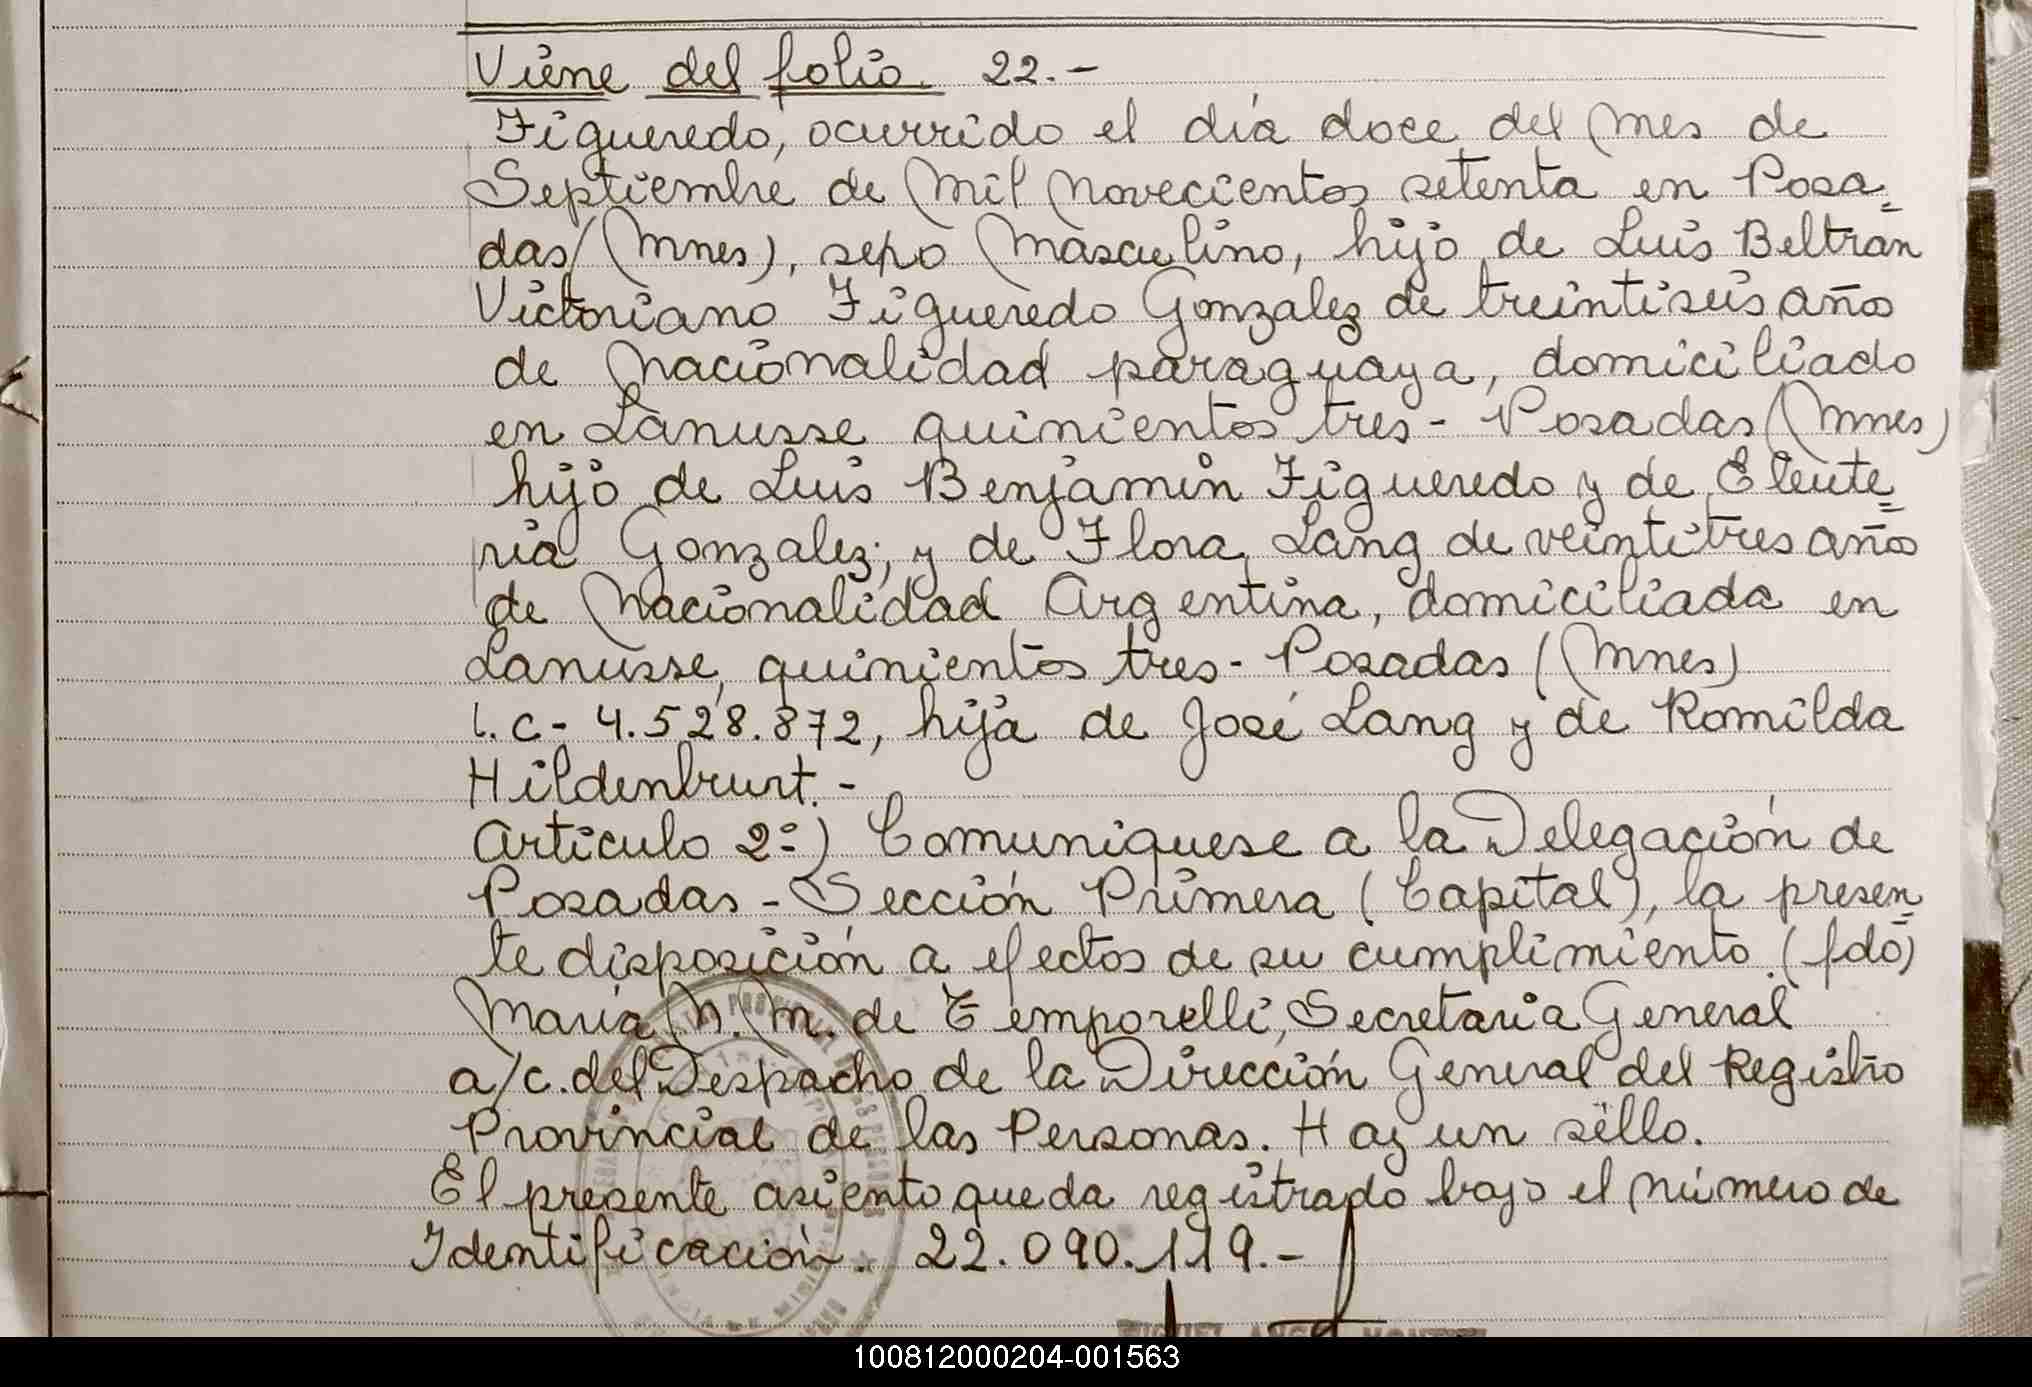 Viene del folio. 22.-
Figueredo, ocurrido el día doce del mes de
Septiembre de mil novecientos setenta en Posa=
das (Mnes), sexo masculino, hijo de Luis Beltran
Victoriano Figueredo Gonzalez de treintiseis años
de nacionalidad paraguaya, domiciliado
en Lanusse quinientos tres- Posadas (Mnes)
hijo de Luis Benjamin Figueredo y de Eleute=
ria Gonzalez; y de Flora Lang de veintitres años
de nacionalidad Argentina, domiciliada en
Lanusse, quinientos tres- Posadas (Mnes)
L.C- 4.528.872, hija de José Lang y de Romilda
Hildenbrurt.-
Artículo 2º) Comuniquese a la Delegación de
Posadas - Sección Primera (Capital), la presen=
te disposición a efectos de su cumplimiento. (fdo)
María N. M. de Temporelli, Secretaria General
a/c. del Despacho de la Dirección General del Registro
Provincial de las Personas. Hay un sello.
El presente asiento queda registrado bajo el número de
Identificación. 22.090.119.-
100812000204-001563